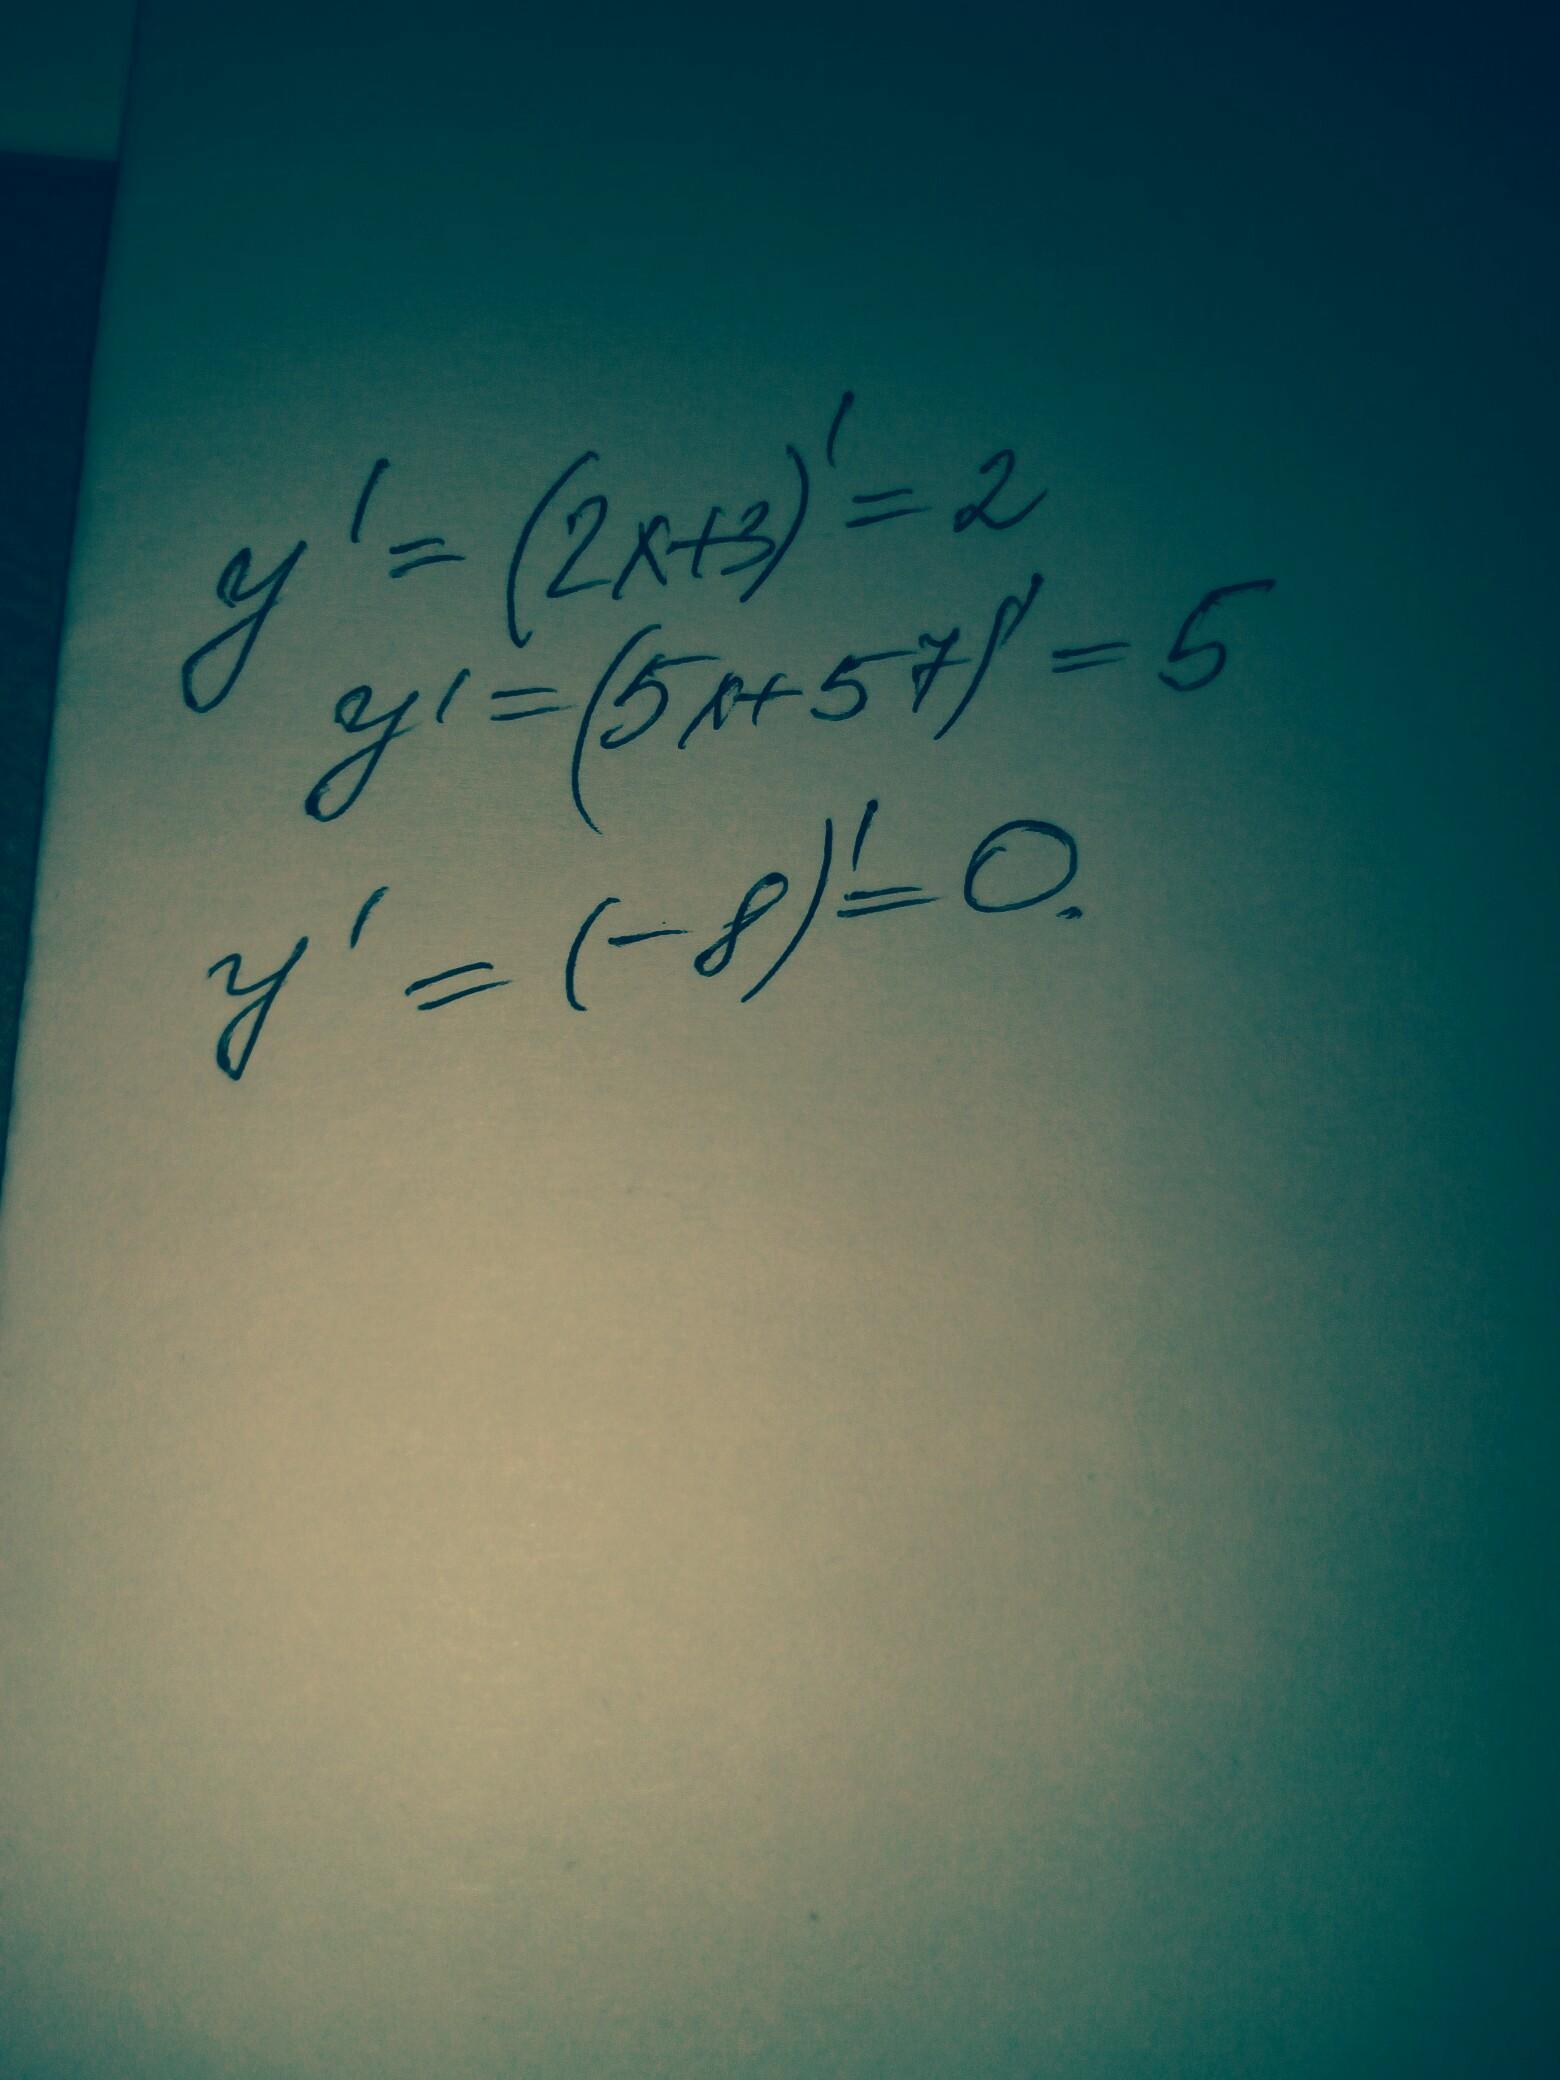 y' = (2x+3)' = 2
y' = (5x+57)' = 5
y' = (-8)' = 0.